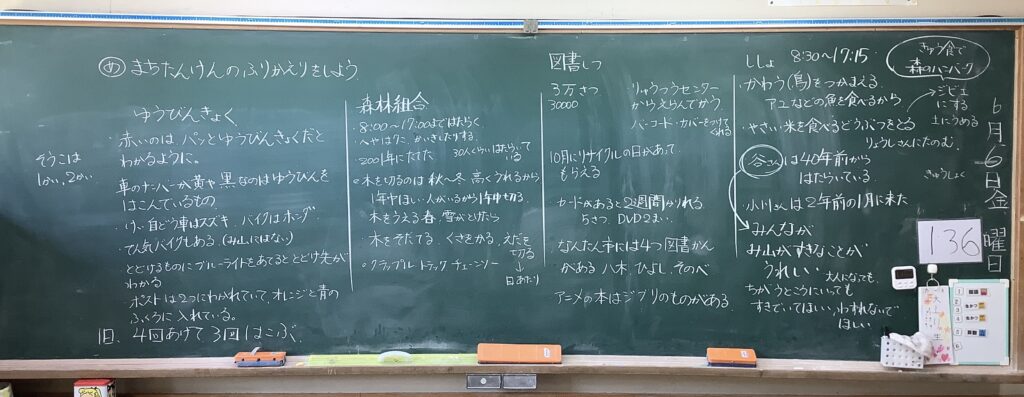 め まちたんけんのふりかえりをしよう
ゆうびんきょく
・赤いのは パッとゆうびんきょくだと
わかるように。
そうこは
1かい、2かい
車のナンバーが黄や黒なのはゆうびんを
はこんでいるもの
・け、自どう車はスズキ バイクはホンダ
で人気バイクもある (み山にはない)
とどけるものにブルーライトをあてるととどけ先が
わかる
ポストは2つにわかれていて、オレンジと青の
ふくろに入れている。
1日、4回あけて3回はこぶ。
森林組合
8:00〜17:00まではたらく
30人くらいはたらいて
いる
2001年にたてた
木を切るのは秋〜冬 高くうれるから
木をうえる春、雪がとけたら
木をそだてる、くさをかる、えだを
切る
↓
日あたり
グラップル トラック チェーンソー
図書しつ
3万さつ
30000
りゅうつうセンター
からえらんでかう。
バーコード・カバーをつけて
くれる
10月にリサイクルの日があって
もらえる
カードがあると2週間かりれる
5さつ DVD2まい
なんたん市には4つ図書かん
がある 八木、ひよし、そのべ
アニメの本はジブリのものがある
ししょ 8:30〜17:15
・かわう(鳥)をつかまえる
アユなどの魚を食べるから
ジビエ
にする
土にうめる
きゅう食で
森のハンバーグ
・やさい、米を食べるどうぶつをとる
りょうしさんにたのむ。
谷さんは40年前から
はたらいている
きゅうしょく
小川さんは2年前の1月に来た
みんなが
み山がすきなことが
うれしい
大人になっても、
ちがうところにいっても
すきでいてほしい、わすれないで
ほしい
6月6日金曜日
136